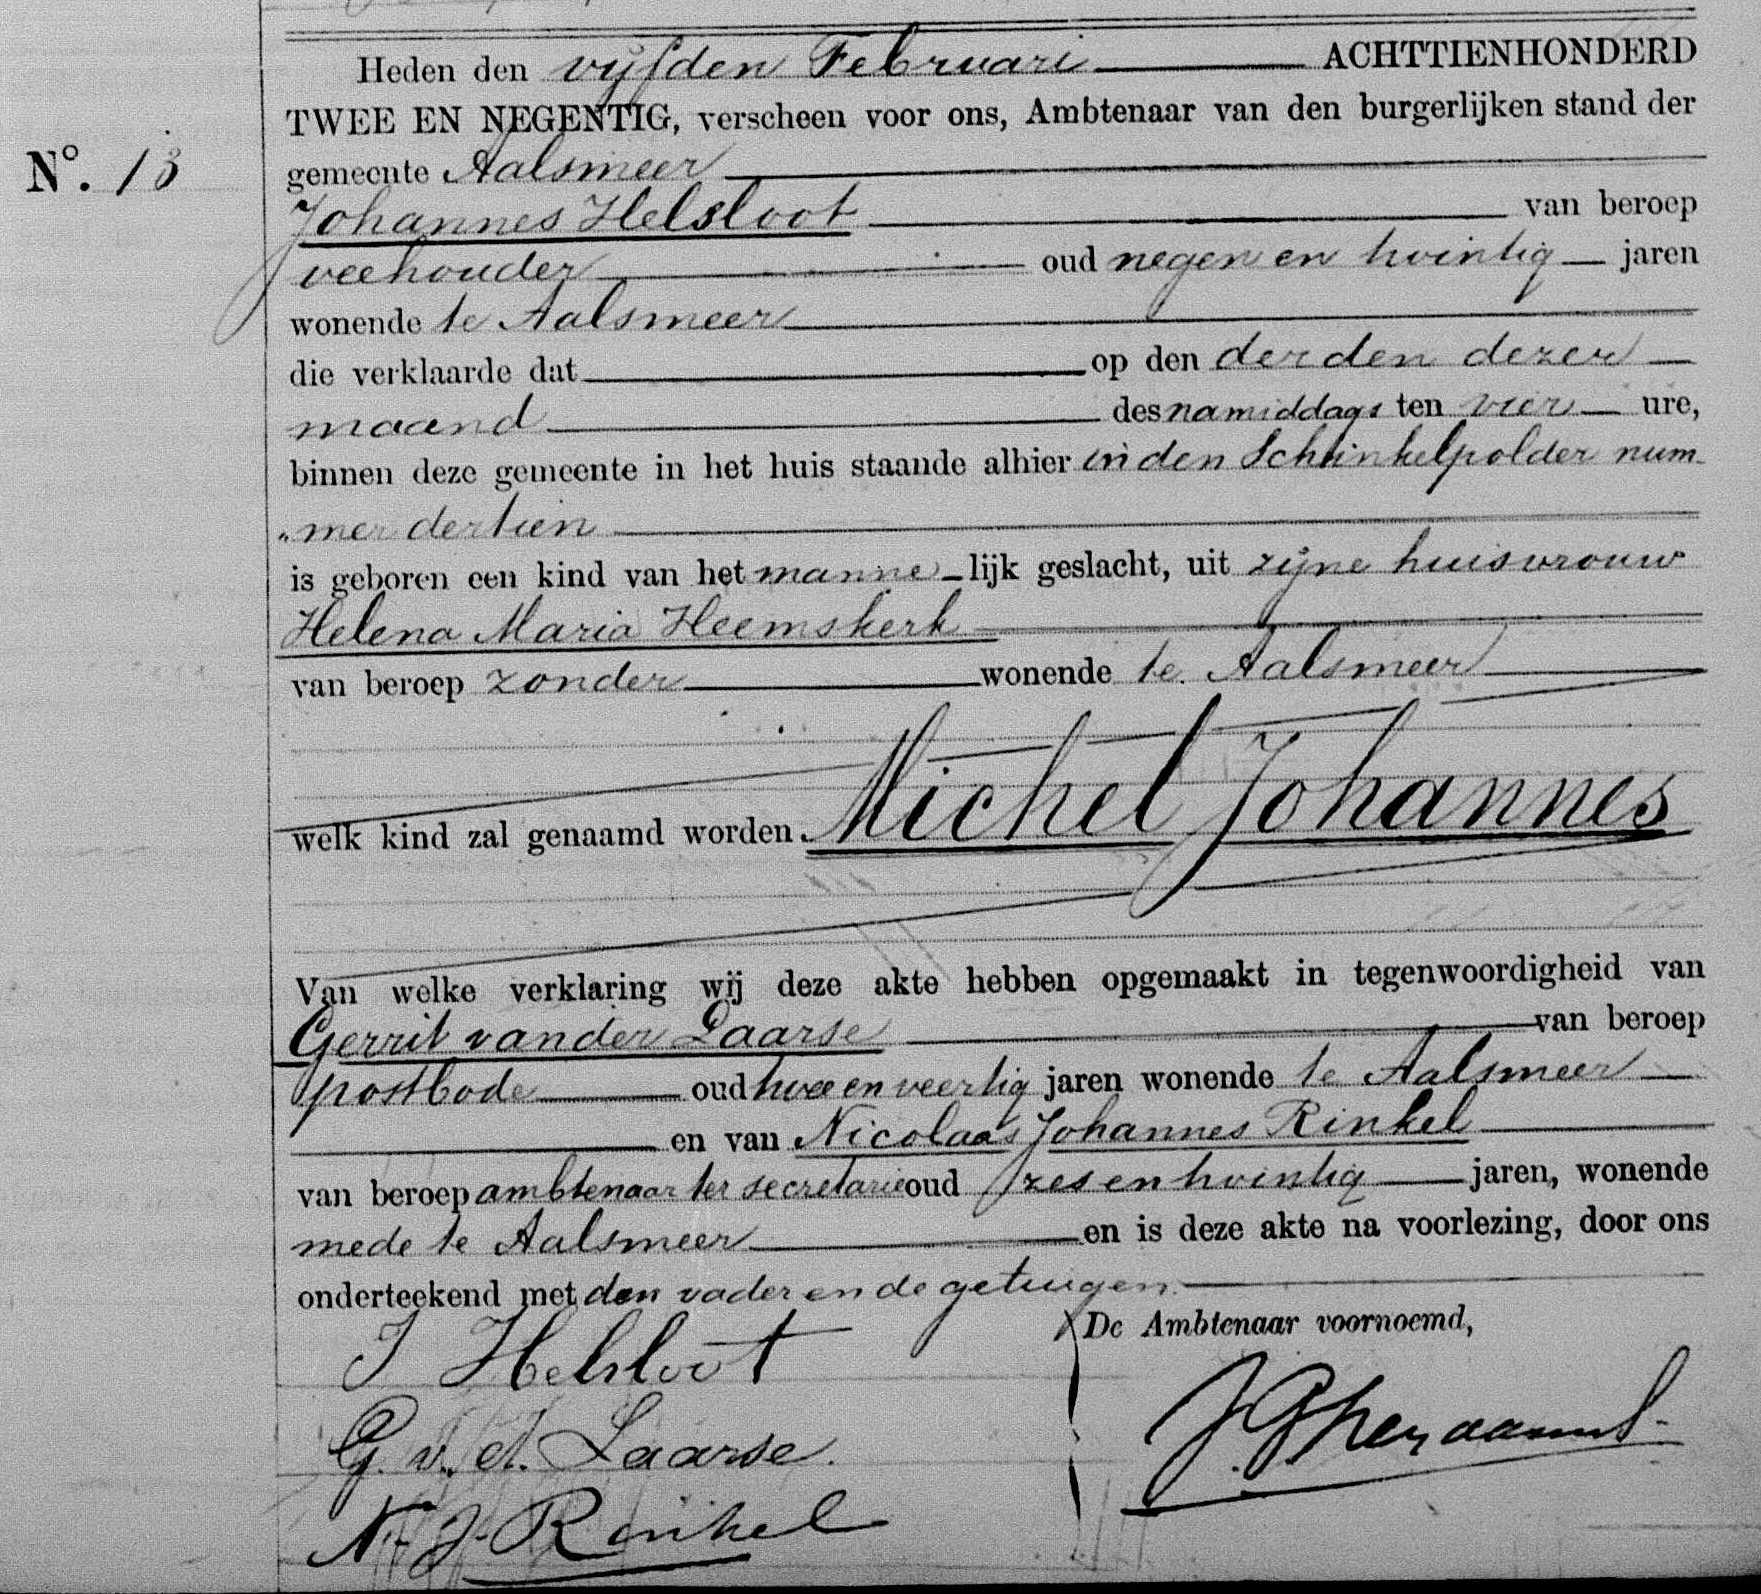 Heden den vyfden Februari ACHTTIENHONDERD
TWEE EN NEGENTIG, verscheen voor ons, Ambtenaar van den burgerlijken stand der
Nº. 13
gemeente Aalsmeer
Johannes Helsloot van beroep
veehouder oud negen en twintig jaren
wonende te Aalsmeer
die verklaarde dat op den derden dezer
maand des namiddags ten vier ure,
binnen deze gemeente in het huis staande alhier in den Schinkelpolder num
"mer dertien
is geboren een kind van het manne-lijk geslacht, uit zijne huisvrouw
Helena Maria Heemskerk
van beroep zonder wonende te Aalsmeer
welk kind zal genaamd worden. Michel Johannes
Van welke verklaring wij deze akte hebben opgemaakt in tegenwoordigheid van
Gerrit van der Laarse van beroep
postbode oud twee en veertig jaren wonende te Aalsmeer
en van Nicolaas Johannes Rinkel
van beroep ambtenaar ter secretarie oud zes en twintig jaren, wonende
mede te Aalsmeer en is deze akte na voorlezing, door ons
onderteekend met den vader en de getuigen.
De Ambtenaar voornoemd,
J Helsloot
G. v. d. Laarse.
N. J. Rinkel